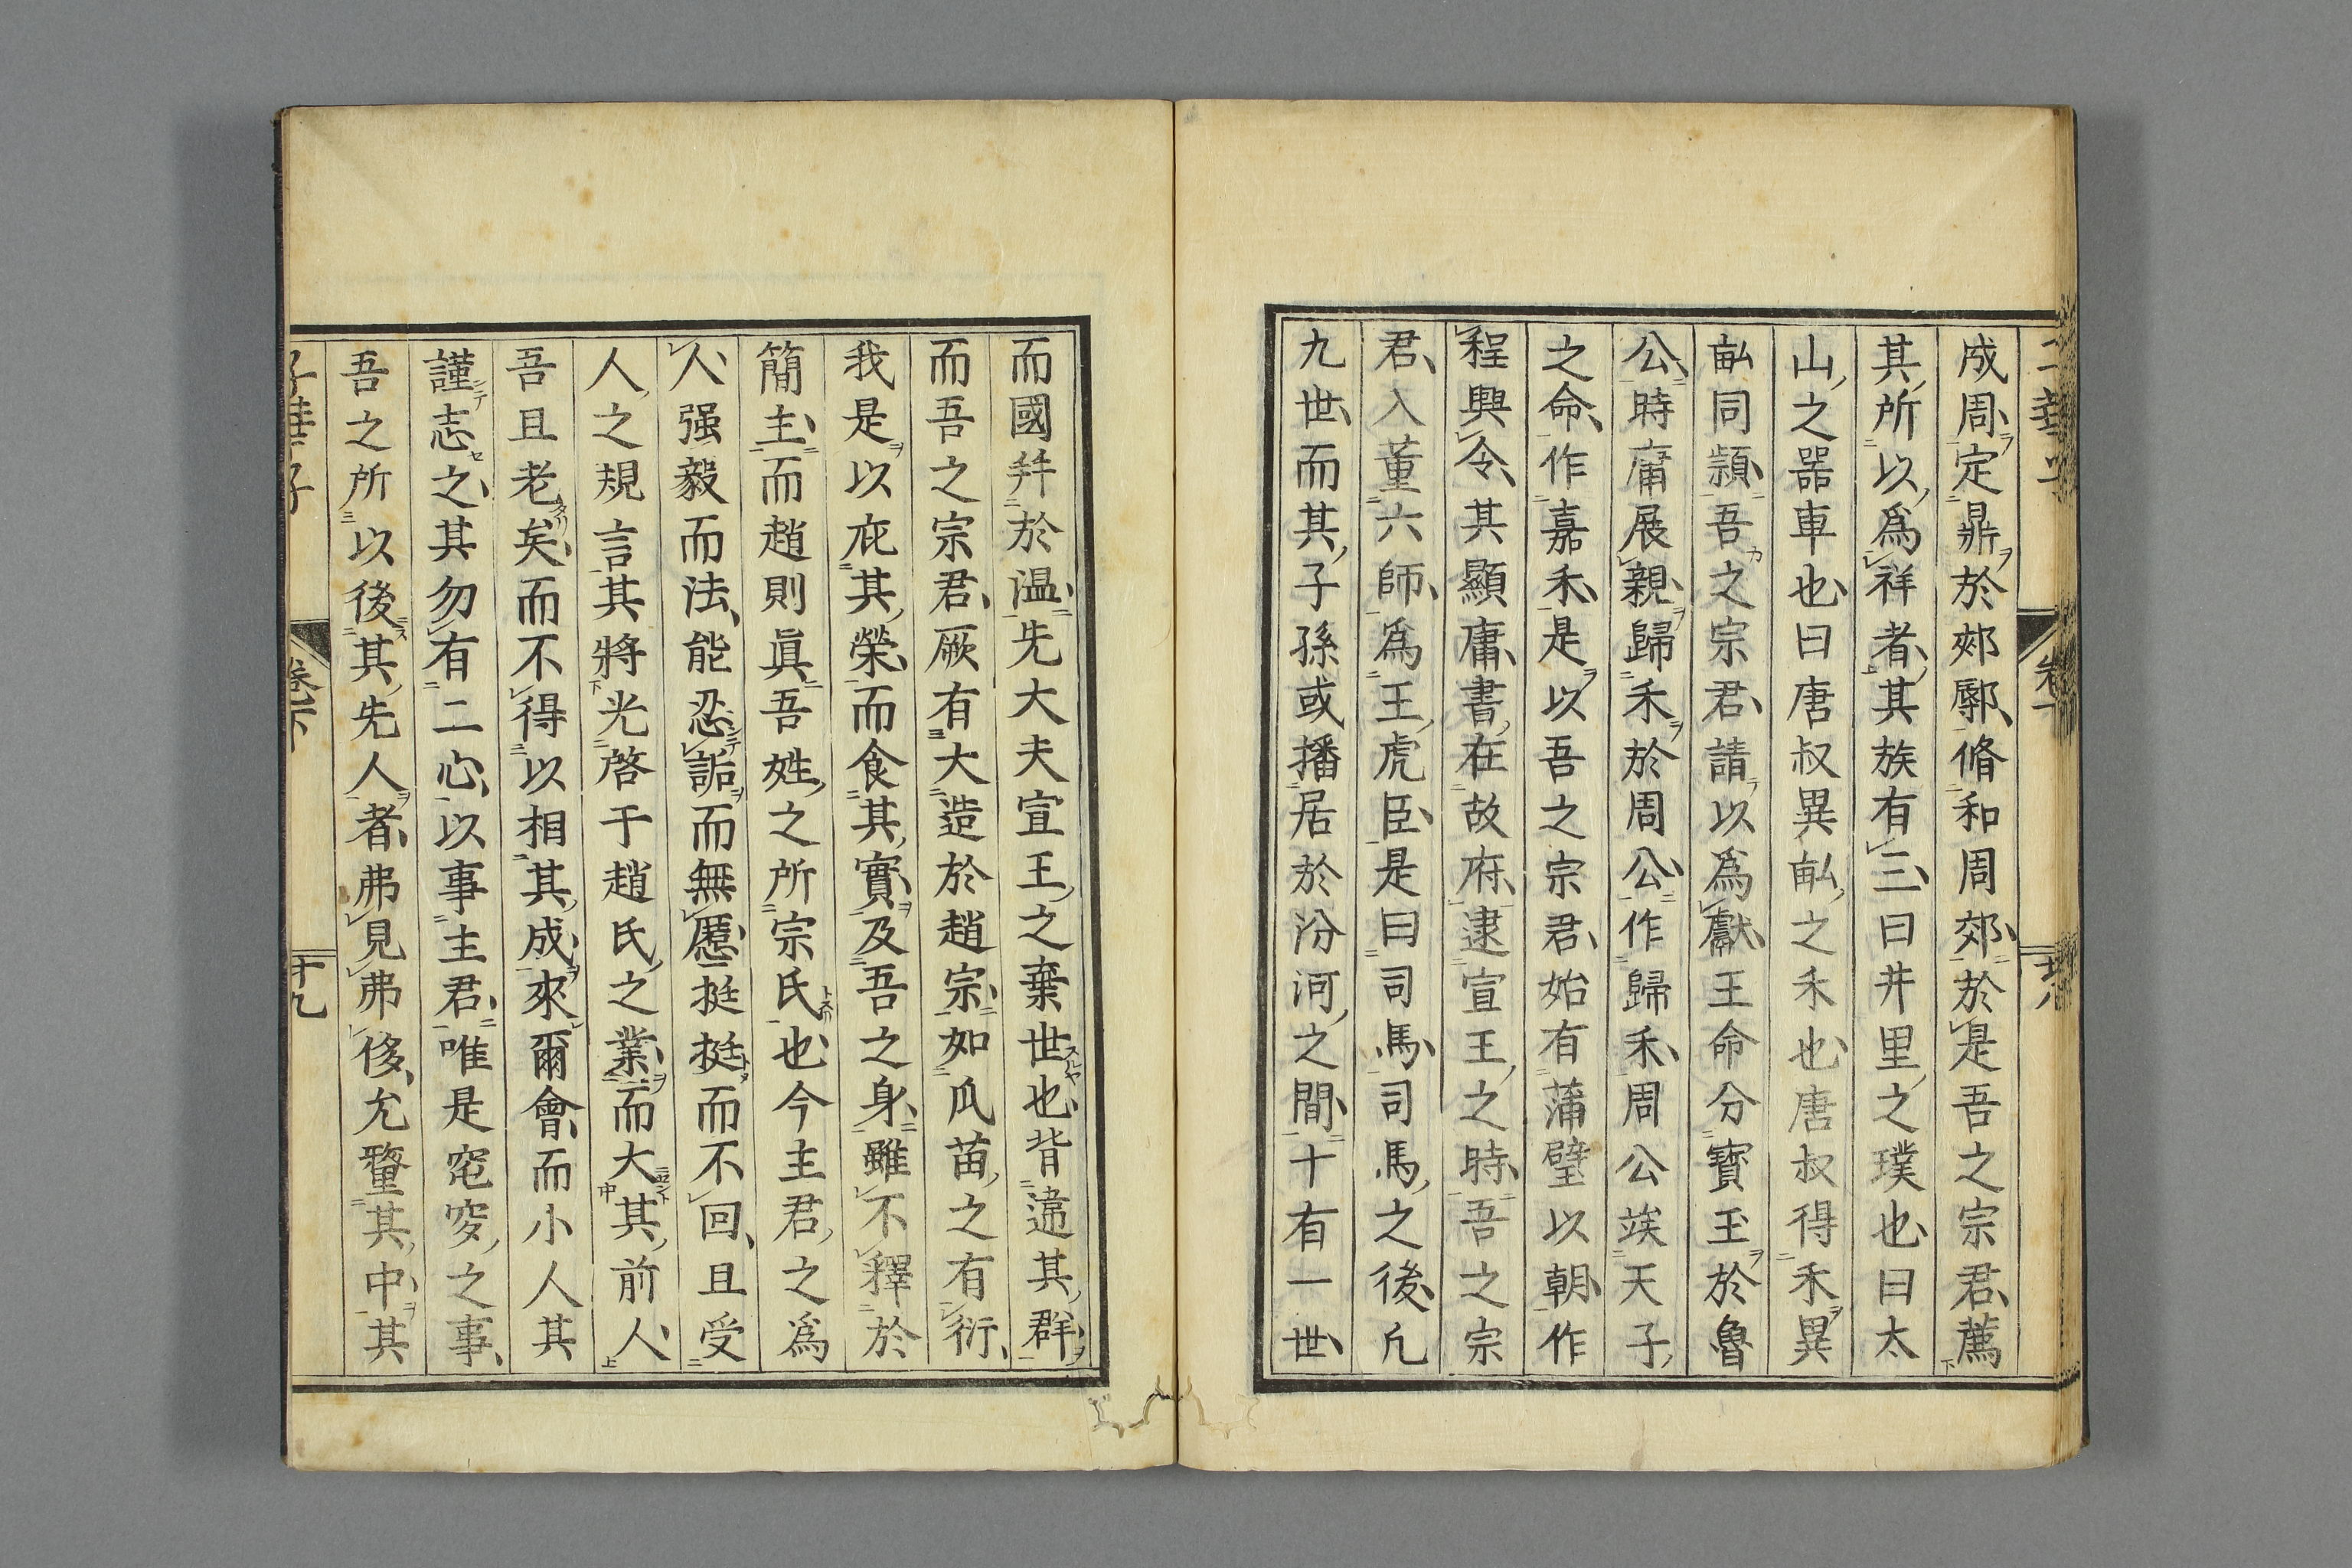 成周定鼎於郟鄏脩和周郊於是吾之宗君薦
其所以爲祥者其族有三曰井里之璞也曰太
山之器車也曰唐叔異畝之禾也唐叔得禾異
畝同穎吾之宗君請以爲獻王命分寶玉於魯
公時庸展親歸禾於周公作歸禾周公竢天子
之命作嘉禾是以吾之宗君始有蒲璧以朝作
程典令其顯庸書在故府逮宣王之時吾之宗
君入董六師爲王虎臣是曰司馬司馬之後凢
九世而其子孫或播居於汾河之間十有一世
而國幷於溫先大夫宣王之棄世也背違其群
而吾之宗君厥有大造於趙宗如瓜苗之有衍
我是以庇其榮而食其實及吾之身雖不釋於
簡主而趙則眞吾姓之所宗氏也今主君之爲
人强毅而法能忍詬而無慝挺挺而不回且受
人之規言其將光啓于趙氏之業而大其前人
吾且老矣而不得以相其成來爾會而小人其
謹志之其勿有二心以事主君唯是窀穸之事
吾之所以後其先人者弗見弗侈允蠒其中其
卷下
十九